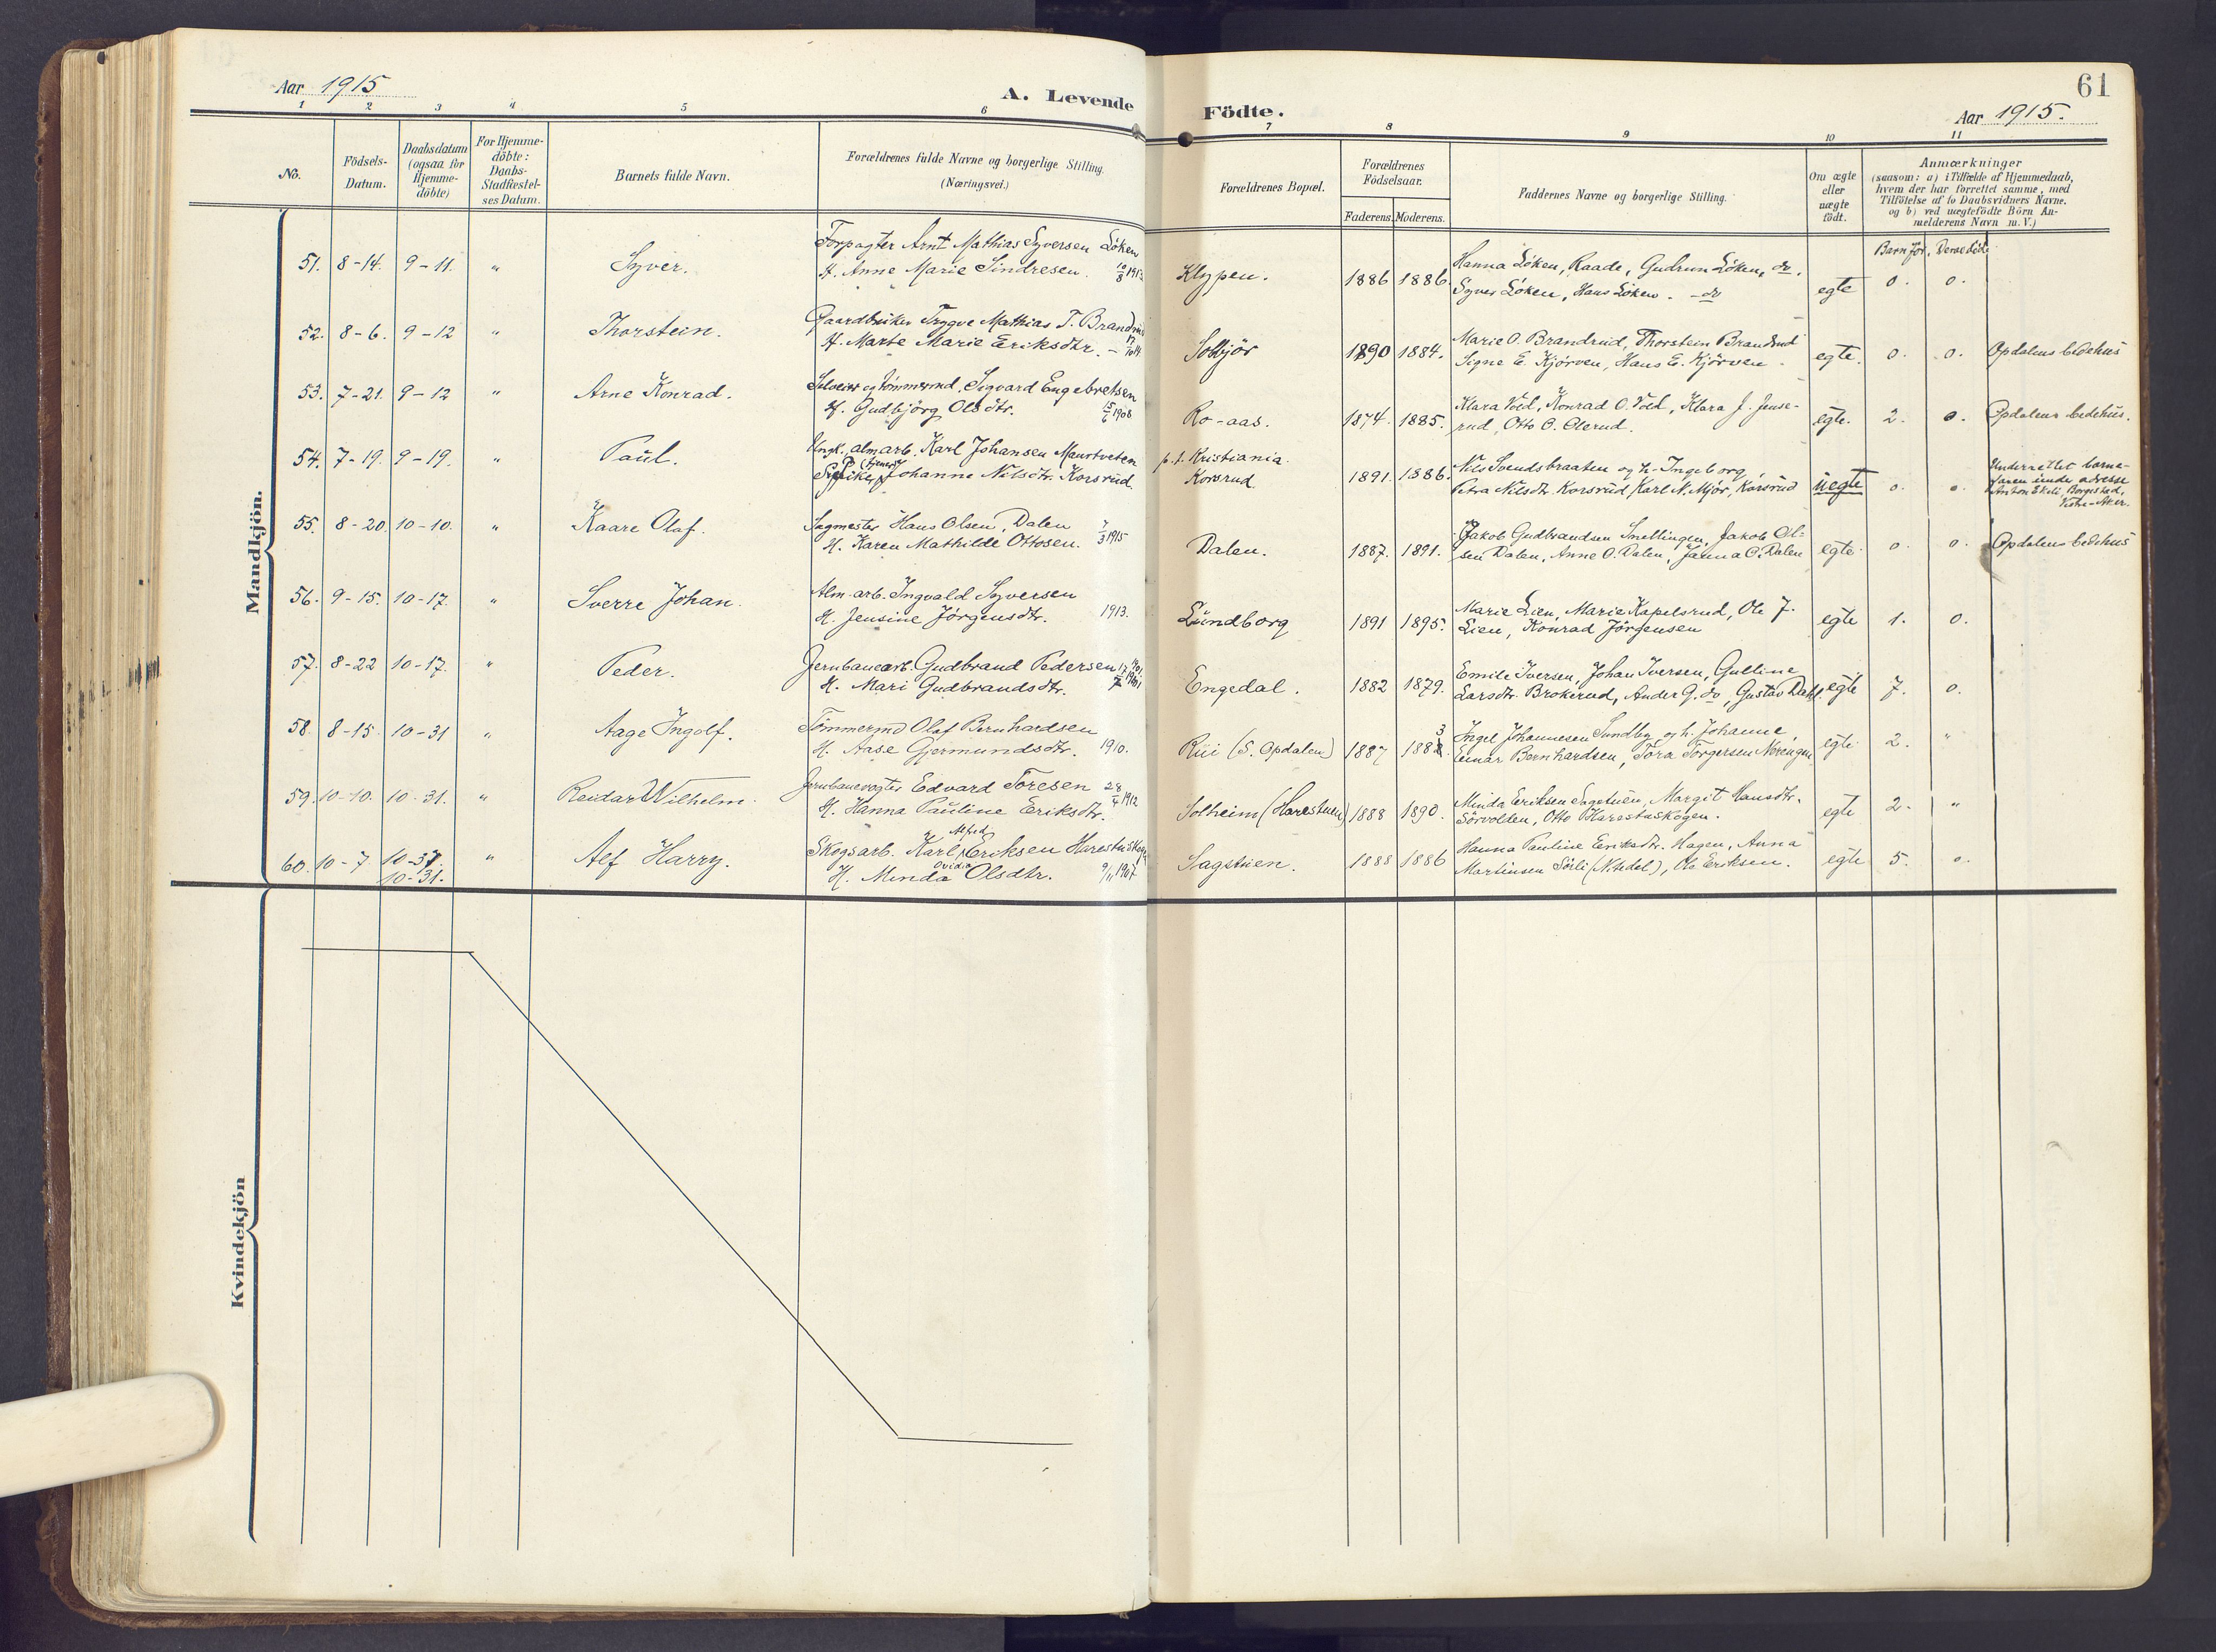 Aar 1915
A. Levende
Födte.
61
Aar 1915.
1 2 3 4 5 6
7 8 9 10 11
No.
Födsels-
Datum.
Daabsdatum
(ogsaa for
Hjemme-
döbte)
For Hjemme-
döbte:
Daabs-
Stadfæstel-
ses Datum.
Barnets fulde Navn.
Forældrenes fulde Navne og borgerlige Stilling.
(Næringsvei.)
Forældrenes Bopæl.
Forældrenes
Födselsaar.
Faderens. Moderens.
Faddernes Navne og borgerlige Stilling.
Om ægte
eller
uægte
födt.
Anmærkninger
(saasom: a) i Tilfælde af Hjemmedaab,
hvem der har forrettet samme, med
Tilföielse af to Daabsvidners Navne.
og b) ved uægtefödte Börn An-
melderens Navn m. V.)
Barn för. Derav döde
Mandkjön.
51. 8-14. 9-11. " Syver.
Forpagter Arnt Mathias Syversen Löken
H. Anne Marie Sindresen. 10/8 1913
Klypen. 1886 1886.
Hanna Löken, Raade, Gudrun Löken, do.
Syver Löken, Hans Löken. - do
egte 0. 0.
52. 8-6. 9-12 " Thorstein.
Gaardbruker Trygve Mathias T. Brandrud
H. Marte Marie Eriksdtr.
Solbjör 1890 1884.
Marie O. Brandrud, Thorstein Brandrud
Signe E. Kjörven, Hans E. Kjörven
egte. 0. 0. Opdalens bedehus
53. 7-21. 9-12 " Arne Konrad.
Selveier og tömmermd. Sigvard Engebretsen
H. Gudbjörg Olsdtr. 15/6 1908
Ro-aas. 1874. 1885.
Klara Vold, Konrad O. Vold, Klara J. Jense-
rud, Otto O. Olerud.
egte. 2. 0. Opdalens bedehus.
54. 7-19. 9-19. " Paul.
Ungk. alm arb. Karl Johansen Maurtveten
Pike (tjener) Johanne Nilsdtr. Korsrud.
p. t. Kristiania.
Korsrud 1891. 1886.
Nils Svendsbraaten og h. Ingeborg,
Petra Nilsdtr. Korsrud, Karl N. Mjör, Korsrud
uegte 0. 0.
Underrettet barne-
faren under adresse
Anton Ekeli, Borgestad,
Vestre-Aker.
55. 8-20. 10-10. " Kaare Olaf.
Sagmester Hans Olsen, Dalen
H. Karen Mathilde Ottosen. 7/3 1915
Dalen. 1887. 1891.
Jakob Gudbrandsen Snellingen, Jakob Ol-
sen Dalen, Anne O. Dalen, Janna O. Dalen
egte 0. 0. Opdalens bedehus
56. 9-15. 10-17. " Sverre Johan.
Alm. arb. Ingvald Syversen
H. Jensine Jörgensdtr. 1913.
Lundborg 1891 1895.
Marie Lien, Marie Kapelsrud, Ole J.
Lien, Konrad Jörgensen
egte 1. 0.
57. 8-22 10-17. " Peder.
Jernbanearb. Gudbrand Pedersen
H. Mari Gudbrandsdtr.
Engedal. 1882 1879.
Emile Iversen, Johan Iversen, Gulline
Larsdtr. Brokerud, Ander G. do, Gustav Dahl.
egte 7. 0.
58. 8-15. 10-31 " Aage Ingolf.
Tömmermd Olaf Bernhardsen
H. Aase Gjermundsdtr. 1910.
Rui (S. Opdalen) 1887 1883
Ingel Johannesen Sundby og h. Johanne,
Einar Bernhardsen, Tora Torgersen Noringen
egte 2. "
59. 10-10. 10-31. " Reidar Wilhelm.
Jernbanevogter Edvard Toresen 28/4 1912
H. Hanna Pauline Eriksdtr.
Solheim (Harestuen) 1888 1890.
Minda Eriksen Sagstuen, Margit Hansdtr.
Sörvollen, Otto Harestuskogen.
egte 2. "
60. 10-7 10-31. " Alf Harry.
10-31.
Skogsarb. Karl Alfred Eriksen Harestuskog
H. Minda Ovidia Olsdtr. 9/11 1907
Sagstuen. 1888 1886
Hanna Pauline Eriksdtr. Hagen, Anna
Martinsen Sörli (Nitedal), Ole Eriksen.
egte 5. 0.
Kvindekjön